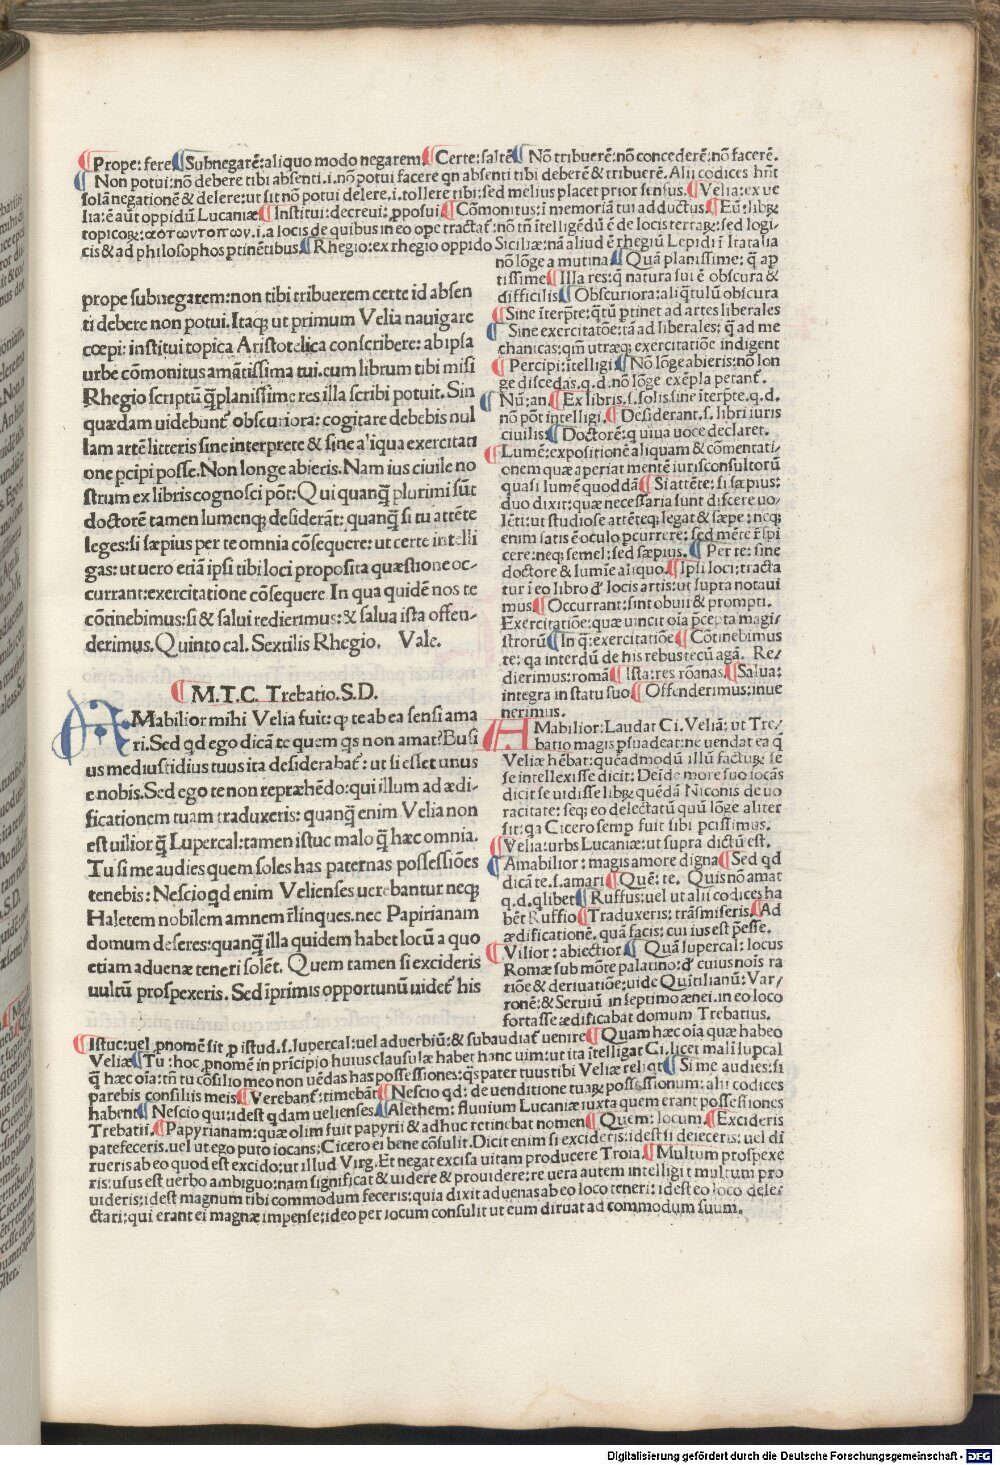 ¶Prope: fere ¶Subnegarē: aliquo modo negarem. ¶Certe: saltē ¶Nō tribuerē: nō concederē: nō facerē.
¶Non potui: nō debere tibi absenti. i. nō potui facere qn absenti tibi deberē & tribuerē. Alii codices hn̄t
solā negationē & delere: ut sit nō potui delere. i. tollere tibi: sed melius placet prior sensus. ¶Velia: ex ve
lia: ē aūt oppidū Lucaniæ ¶Institui: decreui: ꝓposui ¶Cōmonitus: ī memoriā tui adductus ¶Eū: libꝝ
topicoꝝ: αοτωντοπων. i. a locis de quibus in eo ope tractat᷑: nō tn̄ ītelligēdū ē de locis terraꝝ: sed logi-
cis & ad philosophos ptinētibus. ¶Rhegio: ex rhegio oppido Siciliæ: nā aliud ē rhegiū Lepidi ī Itatalia
nō lōge a mutina. ¶Quā planissime: q̄ ap
tissime ¶Illa res: q̄ natura sui ē obscura &
difficilis ¶Obscuriora: aliq̄tulū obscura
¶Sine īterpte: q̄tū ptinet ad artes liberales
¶Sine exercitatōe: tā ad liberales: q̄ ad me
chanicas: qm̄ utræq; exercitatiōe indigent
¶Percipi: ītelligi ¶Nō lōge abieris: nō lon
ge discedas. q. d. nō lōge exēpla petant᷑.
¶Nū: an ¶Ex libris. s. solis sine īterpte. q. d.
nō pōt intelligi. ¶Desiderant. s. libri iuris
ciuilis ¶Doctorē: q uiua uoce declaret.
¶Lumē: expositionē aliquam & cōmentati-
onem quæ aperiat mentē iurisconsultorū
quasi lumē quoddā ¶Si attēte: si sæpius:
duo dixit: quæ necessaria sunt discere uo-
lēti: ut studiose attēteq; legat & sæpe: neq;
enim satis ē oculo pcurrere: sed mēte r̄spi
cere: neq; semel: sed sæpius. ¶Per te: sine
doctore & lumīe aliquo. ¶Ipsi loci: tracta
tur ī eo libro đ locis artis: ut supra notaui
mus ¶Occurrant: sint obuii & prompti.
Exercitatiōe: quæ uincit oīa p̄cepta magi-
strorū ¶In q̄: exercitatiōe ¶Cōtinebimus
te: qa interdū de his rebus tecū agā. Re-
dierimus: romā ¶Ista: res rōanas. ¶Salua:
integra in statu suo ¶Offenderimus: inue
nerimus.
prope subnegarem: non tibi tribuerem certe id absen
ti debere non potui. Itaq; ut primum Velia nauigare
cœpi: institui topica Aristotelica conscribere: ab ipsa
urbe cōmonitus amātissima tui. cum librum tibi misi
Rhegio scriptū q̄planissime res illa scribi potuit. Sin
quædam uidebunt᷑ obscuriora: cogitare debebis nul
lam artē litteris sine interprete & sine aliqua exercitati
one pcipi posse. Non longe abieris. Nam ius ciuile no
strum ex libris cognosci pōt: Qui quanq̄ plurimi sūt
doctorē tamen lumenq; desiderāt: quanq̄ si tu attēte
leges: si sæpius per te omnia cōsequere: ut certe intelli
gas: ut uero etiā ipsi tibi loci proposita quæstione oc-
currant: exercitatione cōsequere In qua quidē nos te
cōtinebimus: si & salui redierimus: & salua ista offen-
derimus. Quinto cal. Sextilis Rhegio. Vale.
¶M.T.C. Trebatio. S.D.
AMabilior mihi Velia fuit: ꝙ te ab ea sensi ama
ri. Sed qd ego dicā te quem qs non amat? Busi
us mediustidius tuus ita desiderabat᷑: ut si esset unus
e nobis. Sed ego te non repræhēdo: qui illum ad ædi-
ficationem tuam traduxeris: quanq̄ enim Velia non
est uilior q̄ Lupercal: tamen istuc malo q̄ hæc omnia.
Tu si me audies quem soles has paternas possessiōes
tenebis: Nescio qd enim Velienses uerebantur neq;
Haletem nobilem amnem r̄linques. nec Papirianam
domum deseres: quanq̄ illa quidem habet locū a quo
etiam aduenæ teneri solēt. Quem tamen si excideris
uultū prospexeris. Sed īprimis opportunū uidet᷑ his
AMabilior: Laudat Ci. Veliā: ut Tre-
batio magis psuadeat: ne uendat ea q̄
Veliæ hēbat: quēadmodū illū facturꝝ ſe
se intellexisse dicit: Deīde more suo iocās
dicit se uidisse librꝝ quēdā Niconis de uo
racitate: seq; eo delectatū quū lōge aliter
sit: qa Cicero semp fuit sibi pcissimus.
¶Velia: urbs Lucaniæ: ut supra dictū est.
¶Amabilior: magis amore digna ¶Sed qd
dicā te. s. amari ¶Quē: te. Quis nō amat
q. d. qlibet ¶Ruffus: uel ut alii codices ha
bēt Ruffio ¶Traduxeris: trāsmiseris. ¶Ad
ædificationē. quā facis: cui ius est p̄esse.
¶Vilior: abiectior ¶Quā lupercal: locus
Romæ sub mōte palatino: đ cuius noīs ra
tiōe & deriuatiōe: uide Quītilianū: Var-
ronē: & Seruiū in septimo ænei. in eo loco
fortasse ædificabat domum Trebatius.
¶Istuc: uel ꝓnomē sit ꝓ istud. s. lupercal: uel aduerbiū: & subaudiat᷑ uenire ¶Quam hæc oīa quæ habeo
Veliæ ¶Tu: hoc ꝓnomē in prīcipio huius clausulæ habet hanc uim: ut ita ītelligat Ci. licet malī lupcal
q̄ hæc oīa: tn̄ tu cōsilio meo non uēdas has possessiones: q̄s pater tuus tibi Veliæ reliqt ¶Si me audies: si
parebis consiliis meis ¶Verebant᷑: timebāt ¶Nescio qd: de uenditione tuaꝝ possessionum: alii codices
habent ¶Nescio qui: idest qdam uelienses. ¶Alethem: fluuium Lucaniæ iuxta quem erant possessiones
Trebatii. ¶Papyrianam: quæ olim fuit papyrii & adhuc retinebat nomen ¶Quem: locum. ¶Excideris
patefeceris. uel ut ego puto iocans: Cicero ei bene cōsulit. Dicit enim si excideris: idest si deieceris: uel di
rueris ab eo quod est excido: ut illud Virg. Et negat excisa uitam producere Troia. ¶Multum prospexe
ris: usus est uerbo ambiguo: nam significat & uidere & prouidere: re uera autem intelligit multum pro
uideris: idest magnum tibi commodum feceris: quia dixit aduenas ab eo loco teneri: idest eo loco dele-
ctari: qui erant ei magnæ impense: ideo per iocum consulit ut eum diruat ad commodum suum.
Digitalisierung gefördert durch die Deutsche Forschungsgemeinschaft - DFG